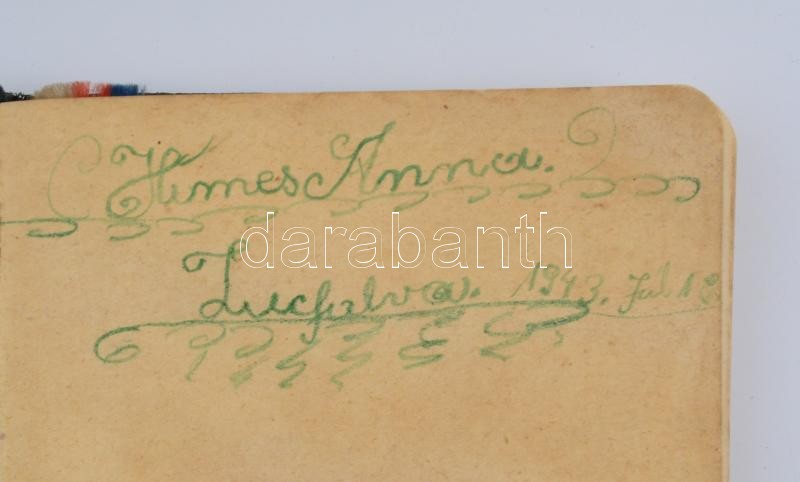 Himes Anna.
darabanth
Lucfalva. 1943. Jul 18